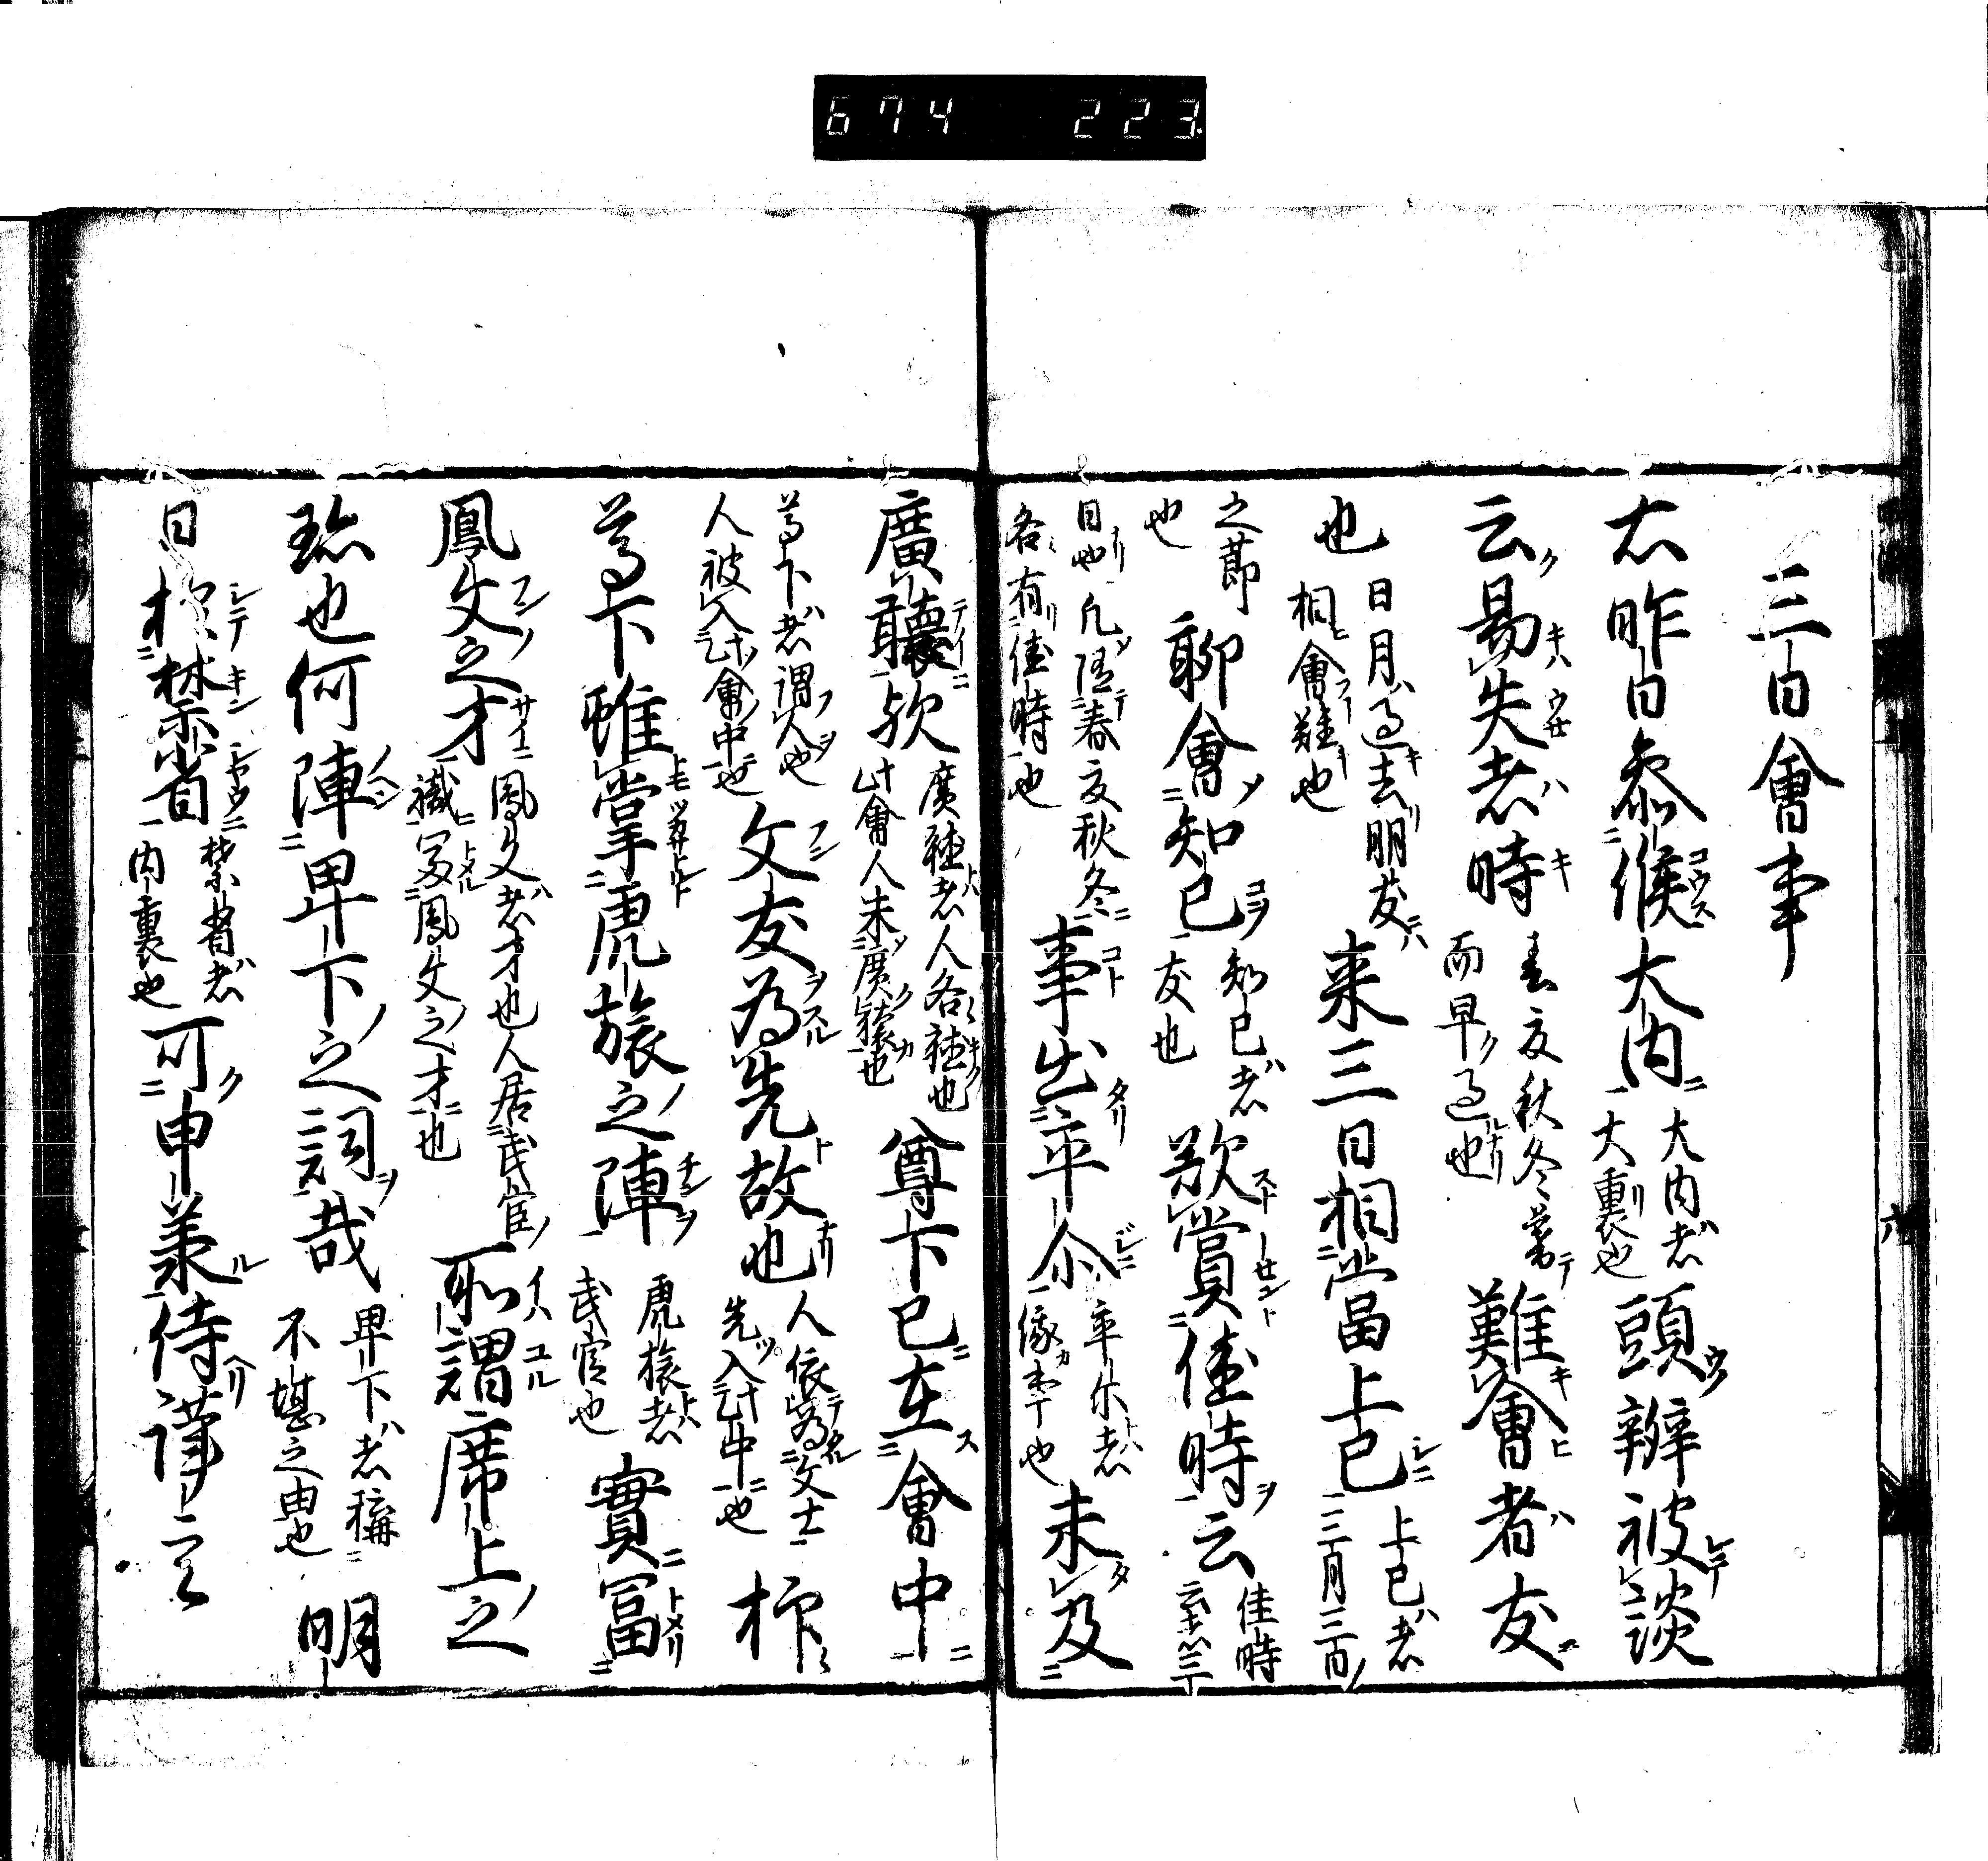 674 223
三日會事
右昨日參候大内 大内者 大裏也 頭辨被談
云易失者時 春夏秋冬暮 而早過也 難會者友
也 日月過去朋友 相會難也 来三日相當上巳 上巳者 三月三日
之節 也 聊會知已 知已者 友也 欲賞佳時云 佳時
日也 凡随春夏秋冬 各有佳時也 事出率尒 率尓者 也 未及
廣聽欤 人各聽也 此會人未廣聽也 尊下已在會中
尊下者謂人也 人被入此會中也 文友為先故也 人依為文士 先入此中也 抑
尊下雖掌虎旅之陣 虎旅者 武官也 實冨
鳳文之才 鳳文者才也人居武官 職冨鳳文之才也 所謂席上之
珎也何陳卑下之詞哉 卑下者稱 不堪之由也 明
日於禁省 禁省者 内裏也 可申承侍謹言